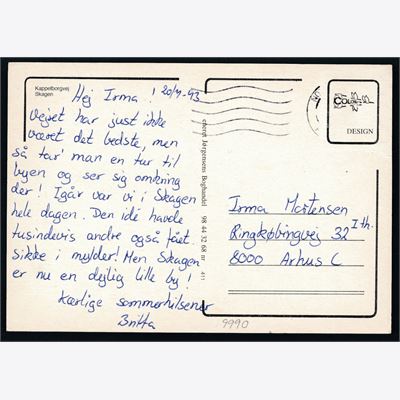 Kappelborgvej
Skagen
Hej Irma ! 20/7-93
Vejret har just ikke
været det bedste, men
så tar' man en tur til
byen og ser sig omkring
der! Igår var vi i Skagen
hele dagen. Den idé havde
tusindevis andre også fået.
Sikke i mylder! Men Skagen
er nu en dejlig lille by!
Kærlige sommerhilsener
Britta
eneret Jørgensens Boghandel 98 44 32 68 nr 411
COLOR
DESIGN
Irma Mortensen
Ringkøbingvej 32 I th.
8000 Århus C
9990